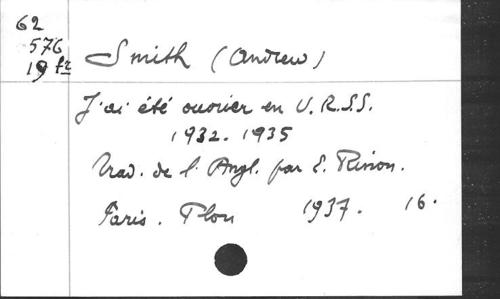 62
576
19 fr
Smith (Andrew)
J'ai été ouvrier en U.R.S.S.
1932-1935
Trad. de l'Angl. par E. Rinon.
Paris. Plon 1937. 16.